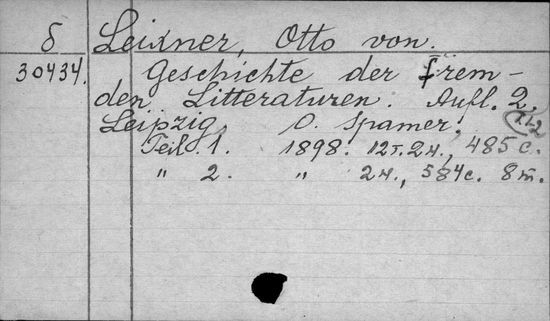 δ Leixner, Otto von.
30434. Geschichte der frem-
den Litteraturen. Aufl. 2.
Leipzig, O. Spamer,
Teil 1. 1898. 2 н., 485 с.
" 2. " 2 н., 584 с. 8 т.